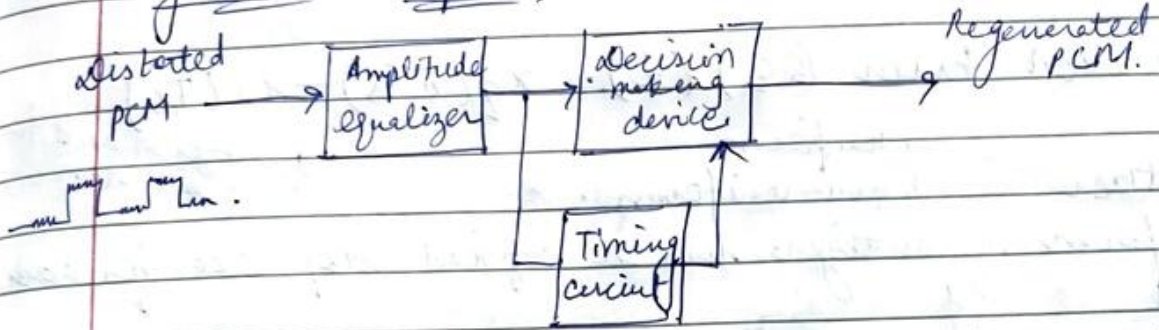 Distorted
PCM
Amplitude
equalizer
Decision
making
device
Regenerated
PCM.
Timing
circuit